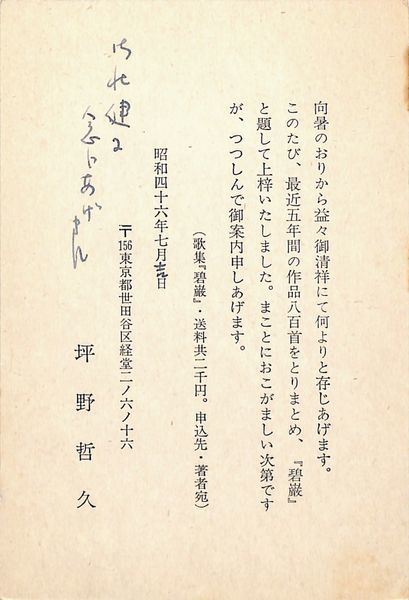 向暑のおりから益々御清祥にて何よりと存じあげます。
このたび、最近五年間の作品八百首をとりまとめ、『碧巌』
と題して上梓いたしました。まことにおこがましい次第です
が、つつしんで御案内申しあげます。
(歌集『碧巌』・送料共二千円。申込先・著者宛)
昭和四十六年七月吉日
〒156東京都世田谷区経堂二ノ六ノ十六
坪野哲久
御健
念じあげ